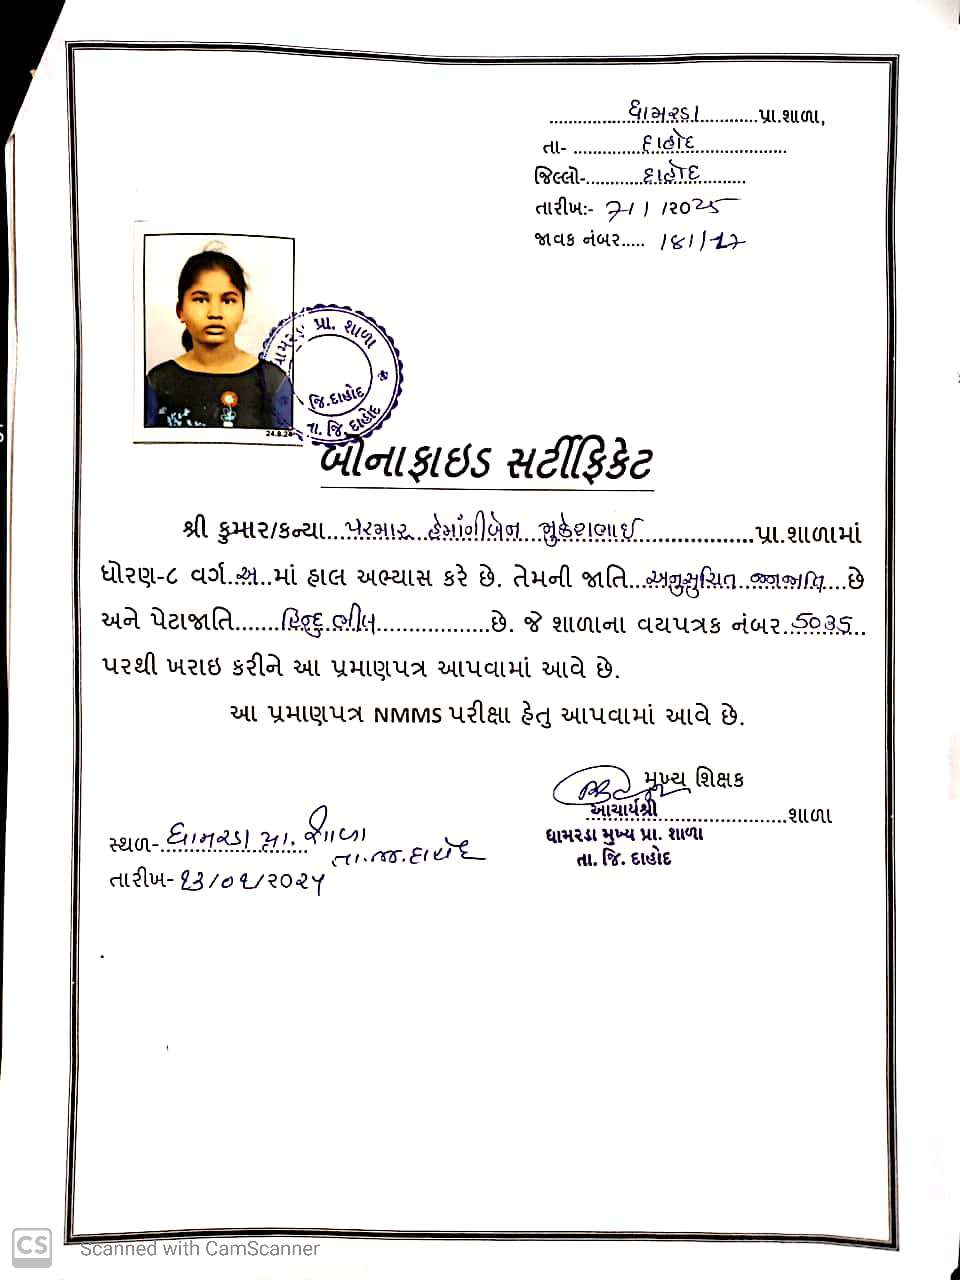 ધામરડા પ્રા.શાળા,
તા- દાહોદ
જિલ્લો- દાહોદ
તારીખ:- 7/1/2025
જાવક નંબર..... 181/17
24.8.24
ધામરડા પ્રા. શાળા
જિ.દાહોદ
તા. જિ. દાહોદ
બોનાફાઇડ સર્ટીફિકેટ
શ્રી કુમાર/કન્યા...પરમાર હેમાંગીબેન મુકેશભાઈ...પ્રા.શાળામાં
ધોરણ-૮ વર્ગ..અ..માં હાલ અભ્યાસ કરે છે. તેમની જાતિ...અનુસુચિત જનજાતિ...છે
અને પેટાજાતિ......હિન્દુ ભીલ......છે. જે શાળાના વયપત્રક નંબર..5035...
પરથી ખરાઇ કરીને આ પ્રમાણપત્ર આપવામાં આવે છે.
આ પ્રમાણપત્ર NMMS પરીક્ષા હેતુ આપવામાં આવે છે.
મુખ્ય શિક્ષક
આચાર્યશ્રી......શાળા
ધામરડા મુખ્ય પ્રા. શાળા
તા. જિ. દાહોદ
સ્થળ- ધામરડા પ્રા. શાળા
તા.જિ.દાહોદ
તારીખ- ૧૩/૦૧/૨૦૨૫
CS Scanned with CamScanner